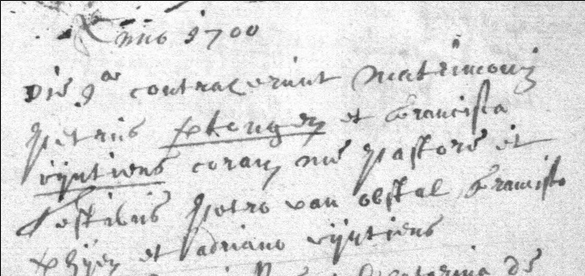 Anno 1700
Die 9ae contraxerunt matrimonij
petrus et francisca
vijntiens coram me pastore et
testibus petro van obstal francisco
et adriano vijntiens